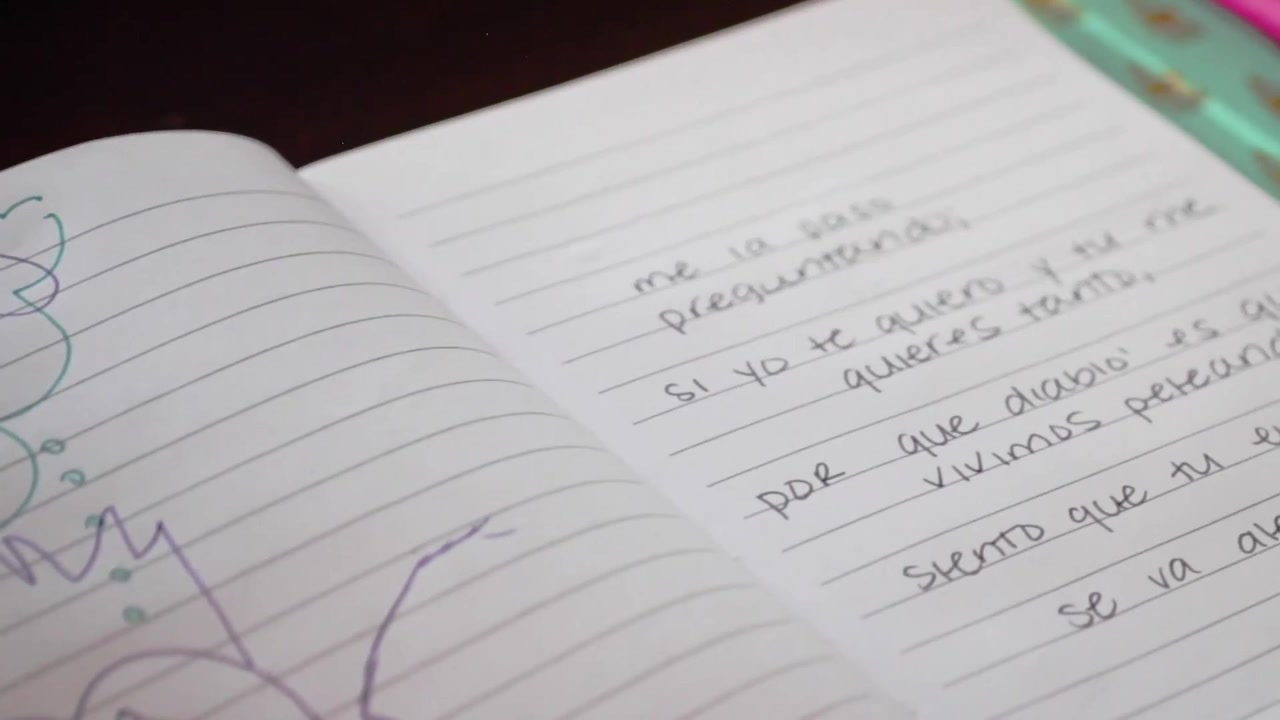 me la paso
preguntando,
si yo te quiero y tu me
quieres tanto,
por que diablo' es
vivimos
siento que tu
se va